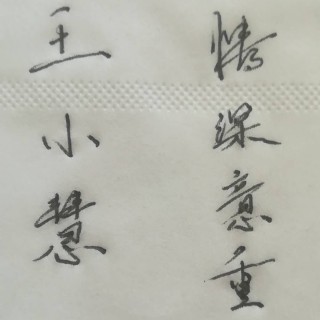 情深意重
王小慧